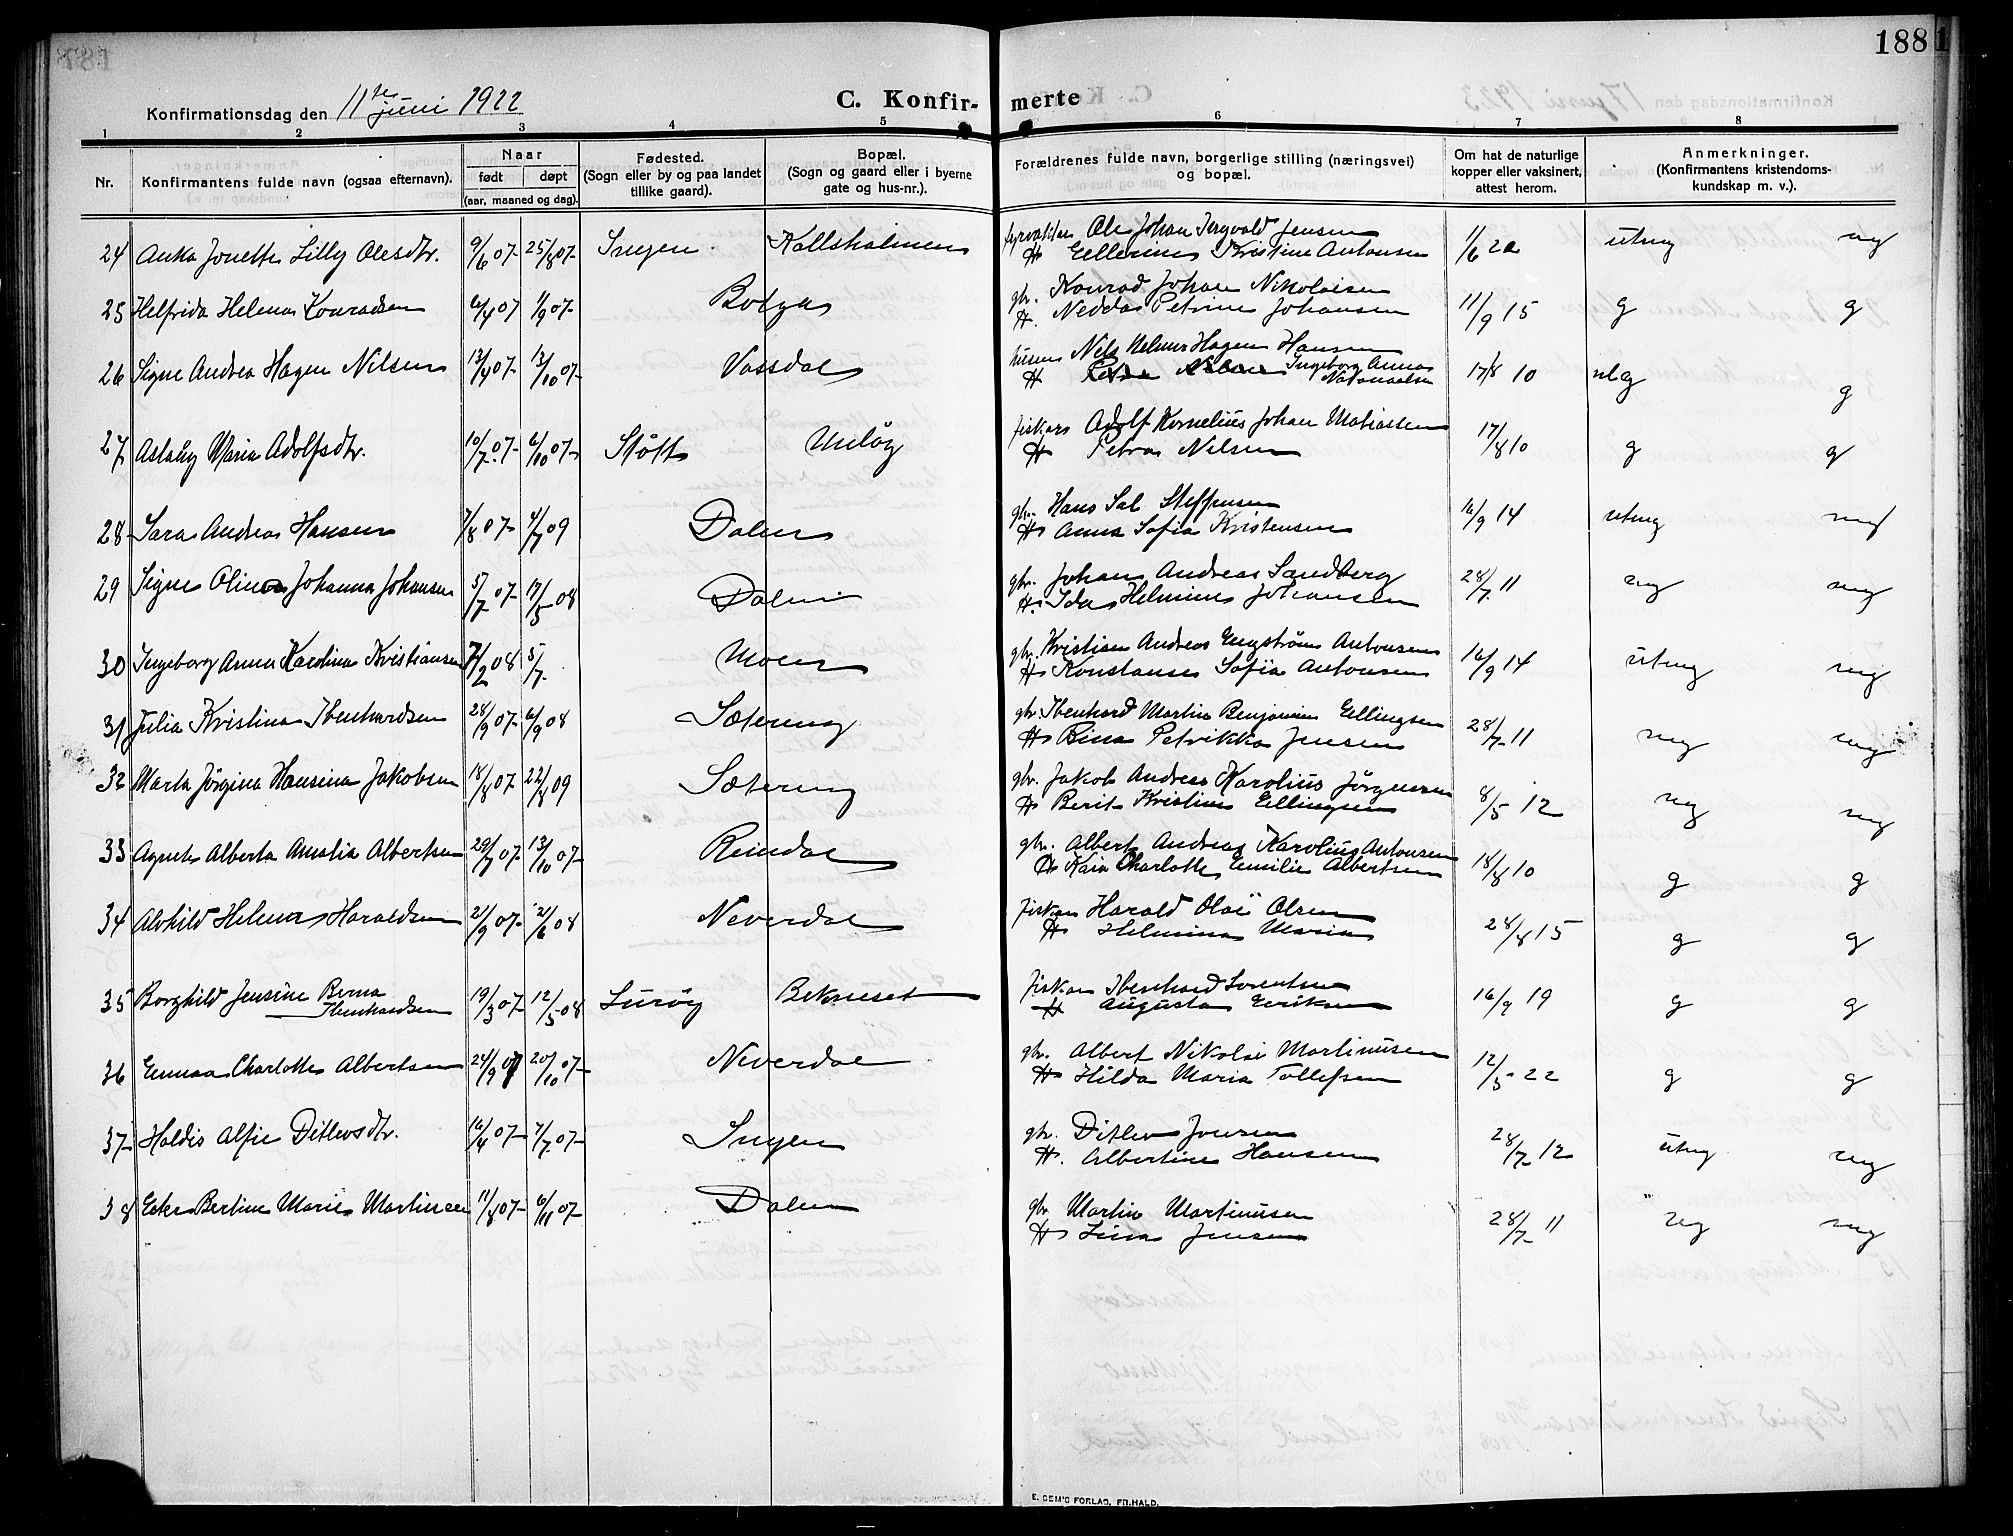 188
Konfirmationsdag den 11te juni 1922
C. Konfirmerte
1 2 3 4 5 6 7 8
Nr. Konfirmantens fulde navn (ogsaa efternavn). Naar født døpt (aar, maaned og dag). Fødested. (Sogn eller by og paa landet tillike gaard). Bopæl. (Sogn og gaard eller i byerne gate og hus-nr.). Forældrenes fulde navn, borgerlige stilling (næringsvei) og bopæl. Om hat de naturlige kopper eller vaksinert, attest herom. Anmerkninger. (Konfirmantens kristendomskundskap m. v.).
24 Anka Jonette Lilly Olesdtr. 9/6 07 25/8 07 Ingen Kallsholmen fyrvokter Ole Johan Ingvald Jensen 1/6 20 utmg mg
H Ellerine Kristine Antonsen
25 Helfrida Helena Konradsen 6/4 07 1/9 07 Bolga gbr. Konrad Johan Nikolaisen 11/9 15 g g
H. Nedda Petrine Johansen
26 Signe Andrea Hagen Nilsen 13/4 07 13/10 07 Vassdal Nils Helmer Hagen Hansen 17/8 10 g
H Ingeborg Anna
27 Aslaug Maria Adolfsdtr. 10/7 07 6/10 07 Støtt fiskers Adolf Kornelius Johan Matiassen 17/8 10 g g
H Petra Nilsen
28 Sara Andrea Hansen 7/8 07 4/7 09 Dalen gbr. Hans Sal. Steffensen 16/9 14 utmg mg
H Anna Sofia Kristensen
29 Signe Olina Johanna Johansen 5/7 07 17/5 08 Dalen gbr. Johan Andreas Sandberg 28/7 11 mg mg
H. Ida Helmine Johansen
30 Ingeborg Anna Karolina Kristiansen 7/2 08 5/7 Moen gbr. Kristian Andreas Engstrøm Antonsen 16/9 14 utmg mg
H Konstanse Sofia Antonsen
31 Julia Kristina Ibenhardsen 28/9 07 6/9 08 Sæterung gbr. Ibenhard Martin Benjamin Ellingsen 28/7 11 mg mg
H Bina Petrikka Jensen
32 Marta Jørgina Hansina Jakobsen 18/8 07 22/8 09 Sæterung gbr. Jakob Andreas Karolius Jørgensen 8/5 12 mg mg
H Berit Kristine Ellingsen
33 Agnete Alberta Amalia Albertsen 29/7 07 13/10 07 Reindal gbr. Albert Andreas Karolius Antonsen 18/8 10 g g
H Kaia Charlotte Emilie Albertsen
34 Alvhild Helena Haraldsen 21/9 07 21/6 08 Neverdal fisker Harald Olai Olsen 28/8 15 g g
H Helmina Maria
35 Borghild Jensine Berna Ibenhardsen 19/3 07 12/5 08 Lurøy fisker Ibenhard Lorentsen 16/9 19 g g
H Augusta Eriksen
36 Emma Charlotte Albertsen 24/9 07 20/10 07 Neverdal gbr. Albert Nikolai Martinusen 12/5 22 g g
H Hilda Maria Tollefsen
37 Haldis Alfie Ditlevsdtr. 16/4 07 7/7 07 Ingen gbr. Ditlev Jensen 28/7 12 utmg mg
H. Albertine Hansen
38 Bertine Marie Martinsen 11/8 07 6/11 07 Dalen gbr Martin Martinusen 28/7 11 mg mg
H Lina Jensen
E. SEM'S FORLAG, FR.HALD.